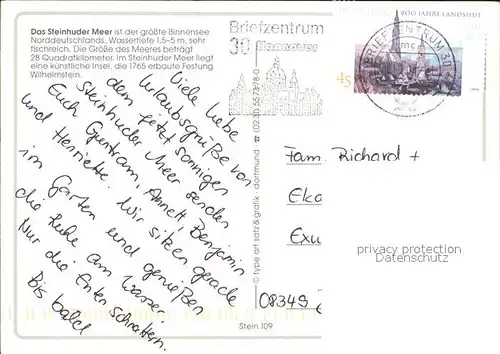 Das Steinhuder Meer ist der größte Binnensee
Norddeutschlands. Wassertiefe 1,5-5 m, sehr
fischreich. Die Größe des Meeres beträgt
28 Quadratkilometer. Im Steinhuder Meer liegt
eine künstliche Insel, die 1765 erbaute Festung
Wilhelmstein.
Viele liebe
Urlaubsgrüße von
dem jetzt sonnigen
Steinhuder Meer senden
Euch Guntram, Annett, Benjamin
und Henriette. Wir sitzen gerade
im Garten und genießen
die Ruhe am Wasser.
Nur die Enten schnattern.
Bis bald
© type art satz & grafik · dortmund · ☎ (0231) 55 73 78-0
Stein 109
Briefzentrum
30 Hannover
BRIEFZENTRUM 30
800 JAHRE LANDSHUT
45
Fam. Richard +
Eka
Exu
08349 S
privacy protection